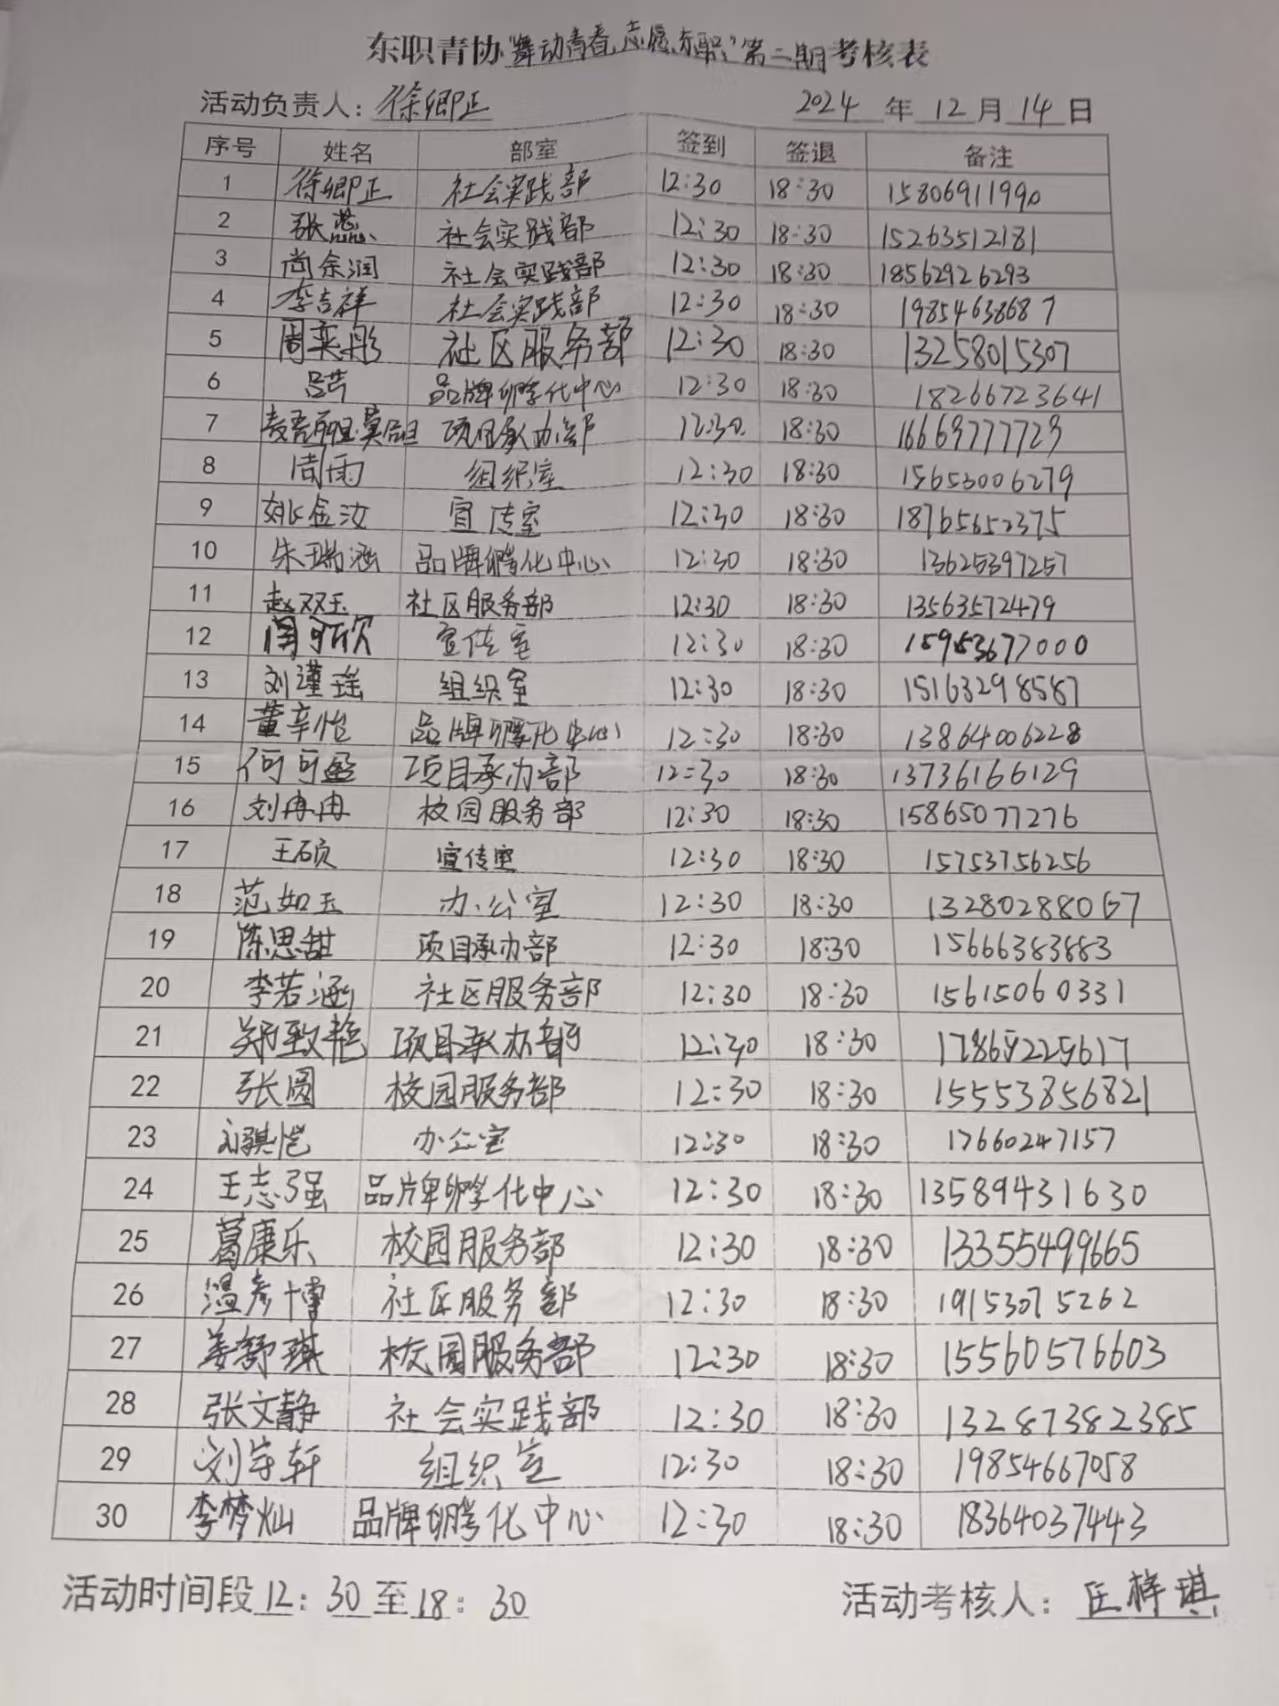 东职青协"舞动青春,志愿东职"第二期考核表
活动负责人：徐卿正 2024 年 12 月 14 日
序号 姓名 部室 签到 签退 备注
1 徐卿正 社会实践部 12:30 18:30 15806911990
2 张蕊 社会实践部 12:30 18:30 15263512181
3 尚余润 社会实践部 12:30 18:30 18562926293
4 李吉祥 社会实践部 12:30 18:30 19854638687
5 周奕彤 社区服务部 12:30 18:30 13258015307
6 吕芊 品牌孵化中心 12:30 18:30 18266723641
7 项目承办部 12:30 18:30 16669777729
8 周雨 组织室 12:30 18:30 15653006279
9 姚金汝 宣传室 12:30 18:30 18765652375
10 朱瑞涵 品牌孵化中心 12:30 18:30 13625397257
11 赵双玉 社区服务部 12:30 18:30 13563572479
12 闫可欣 宣传室 12:30 18:30 15953677000
13 刘瑾瑶 组织室 12:30 18:30 15163298587
14 董辛怡 品牌孵化中心 12:30 18:30 13864006228
15 何可盈 项目承办部 12:30 18:30 13736166129
16 刘冉冉 校园服务部 12:30 18:30 15865077276
17 王硕 宣传室 12:30 18:30 15753756256
18 范如玉 办公室 12:30 18:30 13280288067
19 陈思甜 项目承办部 12:30 18:30 15666383883
20 李若涵 社区服务部 12:30 18:30 15615060331
21 郑致艳 项目承办部 12:30 18:30 17869225617
22 张圆 校园服务部 12:30 18:30 15553856821
23 刘骐恺 办公室 12:30 18:30 17660247157
24 王志强 品牌孵化中心 12:30 18:30 13589431630
25 葛康乐 校园服务部 12:30 18:30 13355499665
26 温彦博 社区服务部 12:30 18:30 19153075262
27 姜舒琪 校园服务部 12:30 18:30 15560576603
28 张文静 社会实践部 12:30 18:30 13287382385
29 刘宇轩 组织室 12:30 18:30 19854667058
30 李梦灿 品牌孵化中心 12:30 18:30 18364037443
活动时间段 12：30 至 18：30 活动考核人：匡梓琪